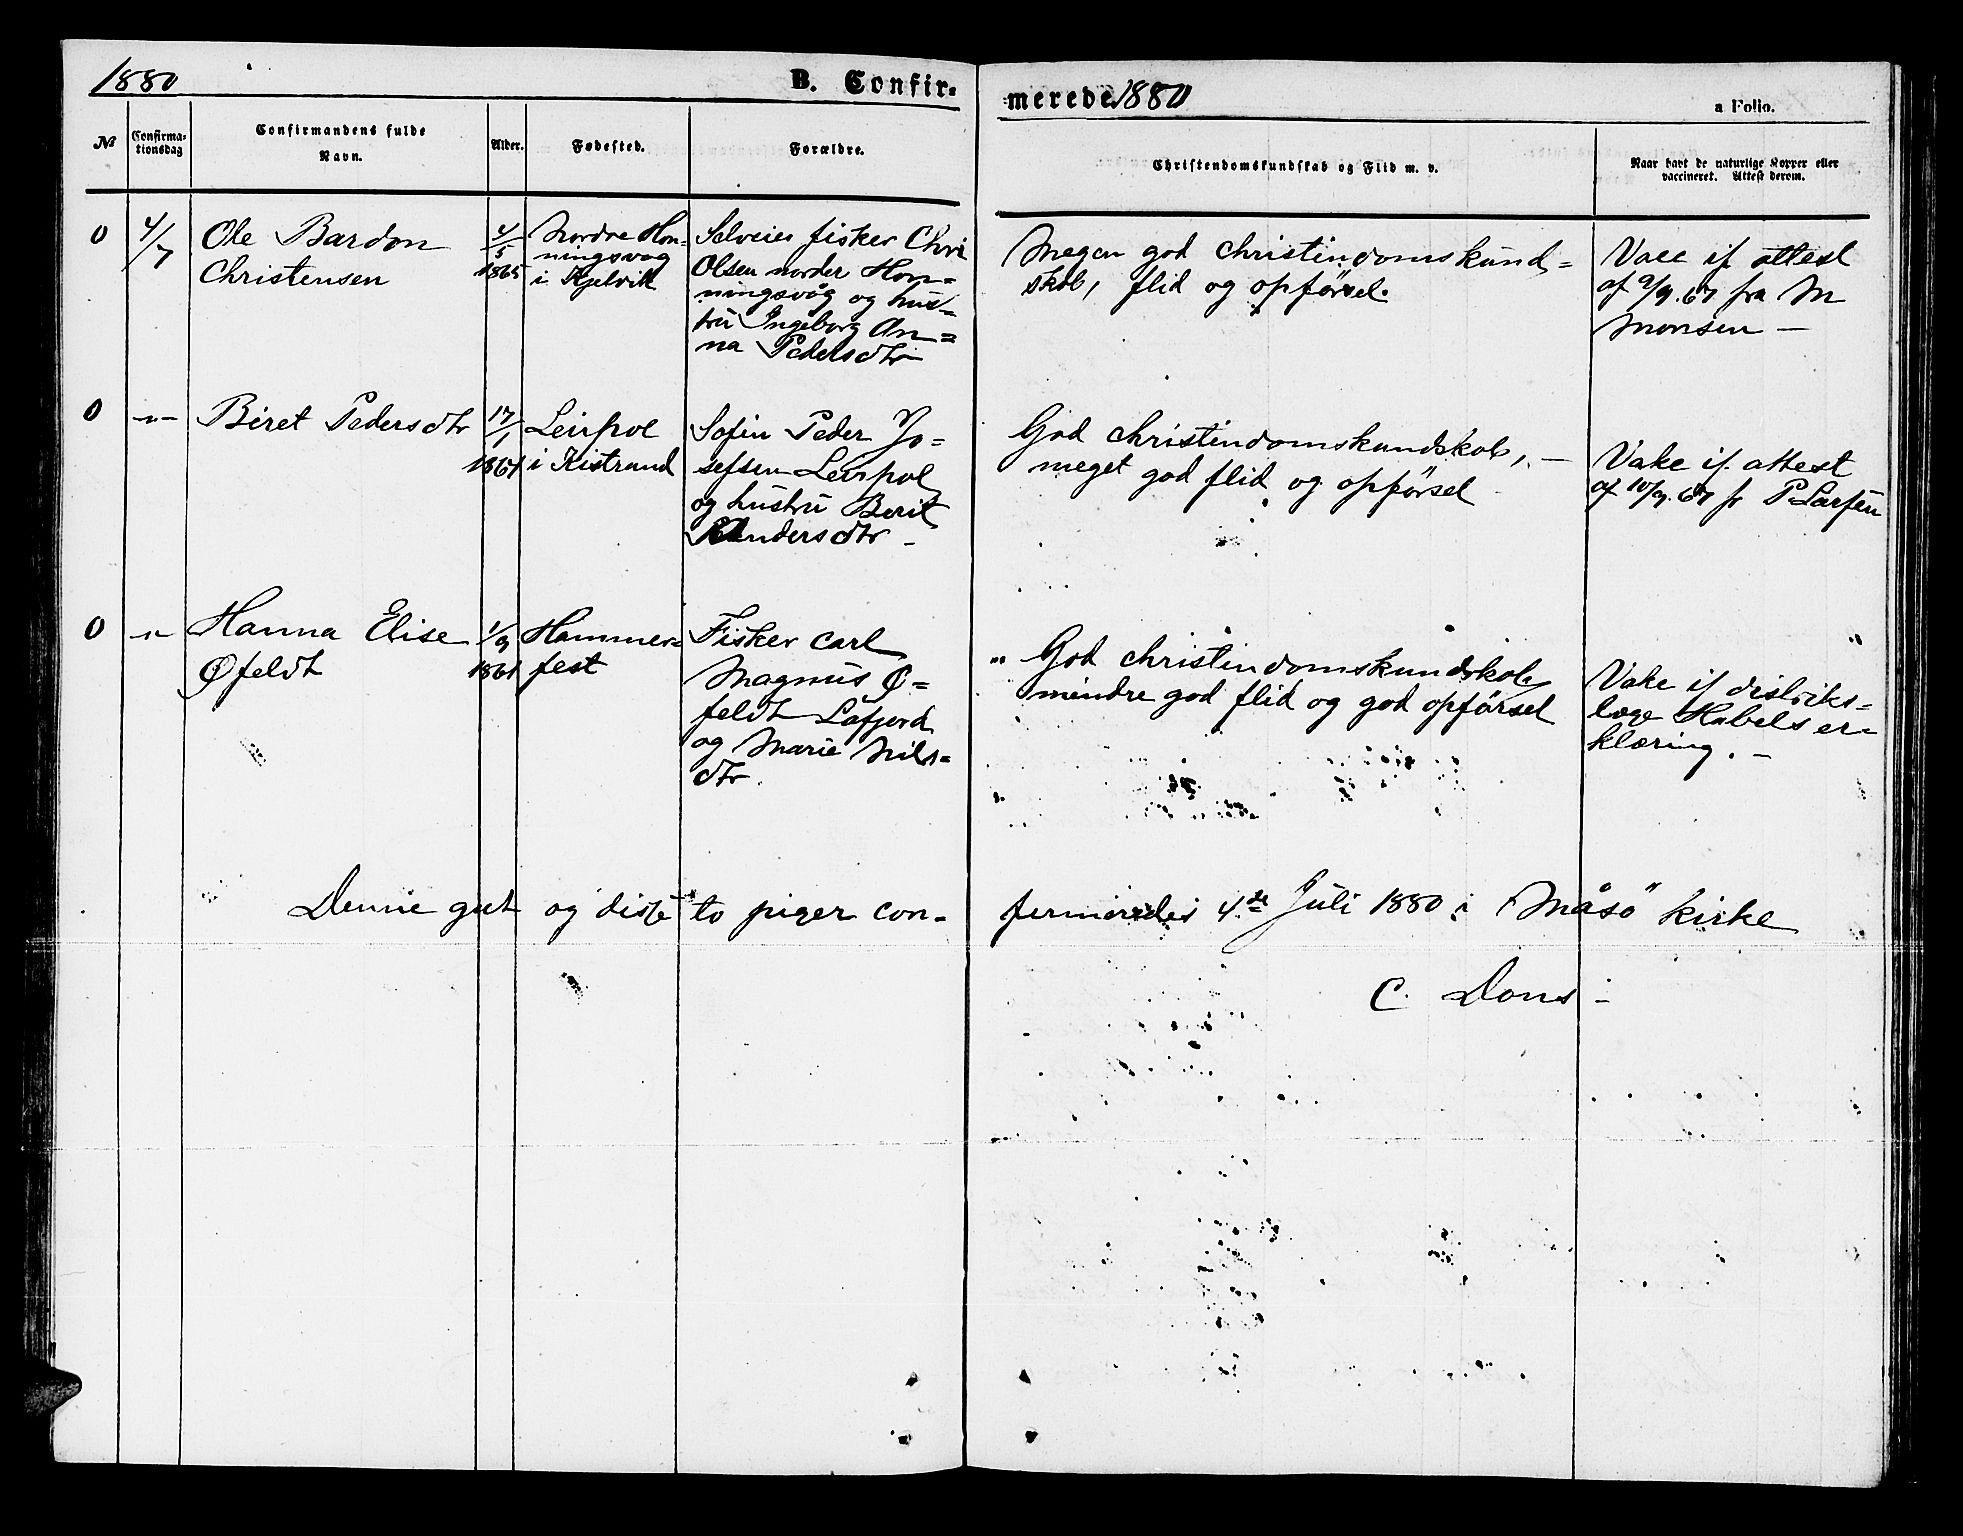 1880
B. Confir-
merede
1880
a Folio.
No
Confirma-
tionsdag
Confirmandens fulde
Navn.
Alder.
Fødested.
Forældre.
Christendomskundskab og Flid m. v.
Naar havt de naturlige Kopper eller
vaccineret. Attest derom.
0
4/7
Ole Bardon
Christensen
4/5
1865
Nordre Hon-
ningsvog
i Kjelvik
Selveier fisker Chri
Olsen norder Hon=
ningsvåg og hus=
tru Ingeborg An=
na Pedersdtr
Megen god christindomskund=
skab, flid og opførsel.
Vacc if attest
af 9/9.67 fra M
Monsen —
0
-"-
Beret Pedersdtr
17/1
1864
Leirpol
i Kistrand
Sofin Peder Jo=
sefsen Leirpol
og hustru Berit
Andersdtr —
God christindomskundskab, —
meget god flid og opførsel
Vake if. attest
af 10/9.67 fr P. Larsen
0
-"-
Hanna Elise
Øfeldt
1/9
1864
Hammer=
fest
Fisker Carl
Magnus Ø=
feldt Lafjord
og Marie Nils=
dtr.
God christindomskundskab
mindre god flid og god opførsel
Vake if distriks=
læge Habels er=
klæring. —
Denne gut og disse to piger con-
fermeredes 4.de Juli 1880 i Måsö kirke
C. Dons